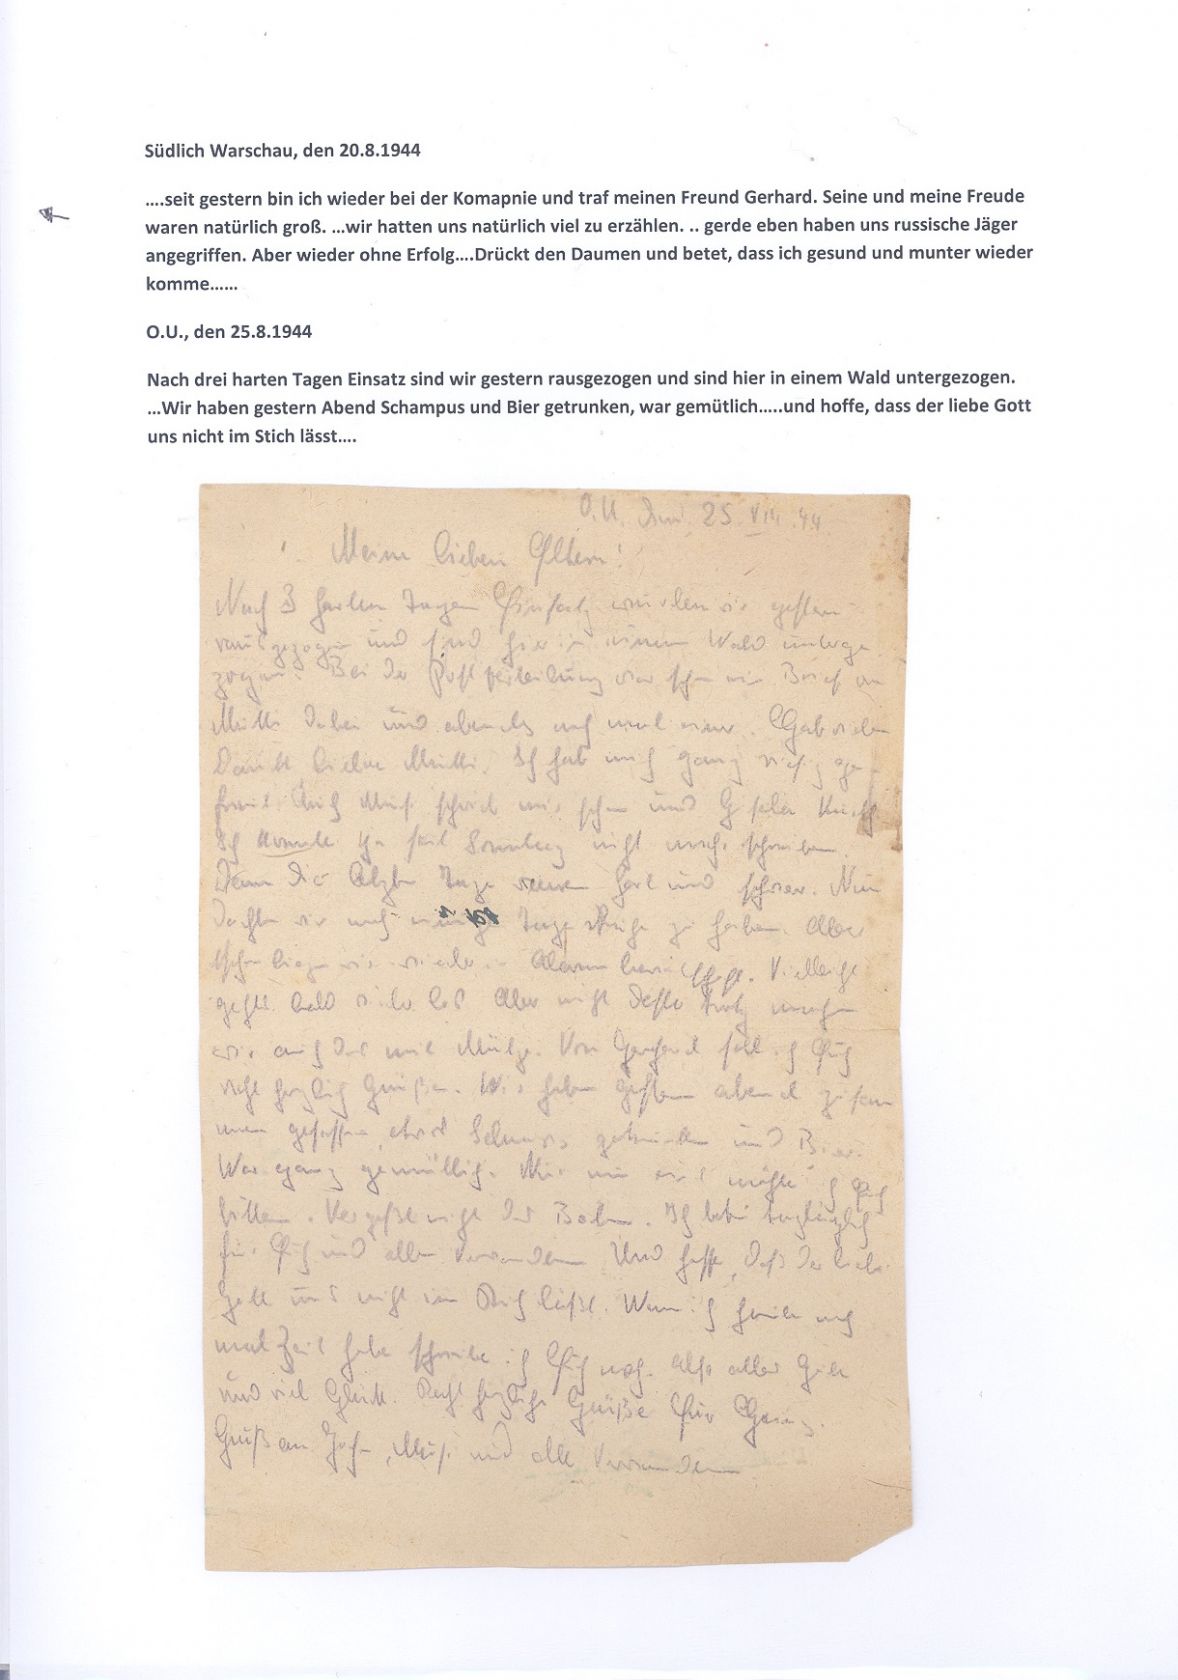 Südlich Warschau, den 20.8.1944
....seit gestern bin ich wieder bei der Komapnie und traf meinen Freund Gerhard. Seine und meine Freude
waren natürlich groß. ...wir hatten uns natürlich viel zu erzählen. .. gerde eben haben uns russische Jäger
angegriffen. Aber wieder ohne Erfolg....Drückt den Daumen und betet, dass ich gesund und munter wieder
komme......
O.U., den 25.8.1944
Nach drei harten Tagen Einsatz sind wir gestern rausgezogen und sind hier in einem Wald untergezogen.
...Wir haben gestern Abend Schampus und Bier getrunken, war gemütlich.....und hoffe, dass der liebe Gott
uns nicht im Stich lässt....
O.U. den 25. VIII. 44
Meine lieben Eltern!
Nach 3 harten Tagen Einsatz wurden wir gestern
rausgezogen und sind hier in einem Wald unterge
zogen. Bei der Postverteilung war schon ein Brief von
Mutti dabei und abends noch mal einer.
Dank liebe Mutti. Ich hab mich ganz riesig ge-
freut. Auch schrieb mir schon und
Ich konnte ja seit Sonntag nicht mehr schreiben.
Denn die letzten Tage waren hart und schwer. Nun
dachten wir noch Tage Ruhe zu haben. Aber
schon liegen wir wieder in Alarmbereitschaft. Vielleicht
gehts bald wieder los. Aber nicht desto trotz machen
wir auch das mit Von Gerhard soll ich Euch
recht herzlich Grüßen. Wir haben gestern abend zusam
men gesessen, etwas getrunken und Bier.
War ganz gemütlich. Nur um eins möchte ich Euch
bitten. Vergeßt nicht das Beten. Ich bete tagtäglich
für Euch und allen Verwandten. Und hoffe, daß der liebe
Gott uns nicht im Stich läßt. Wenn ich heute noch
mal Zeit habe schreibe ich Euch noch. Also alles Gute
und viel Glück. Recht herzliche Grüße Euer
Gruß an und alle Verwandten